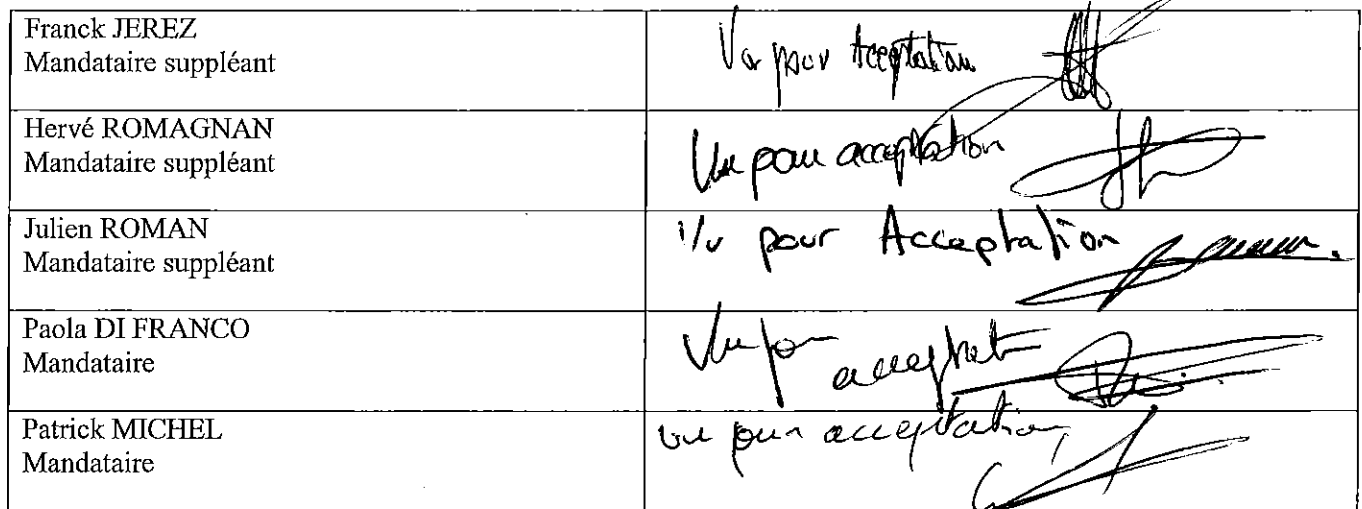 Franck JEREZ
Mandataire suppléant
Vu pour Acceptation
Hervé ROMAGNAN
Mandataire suppléant
Vu pour acceptation
Julien ROMAN
Mandataire suppléant
Vu pour Acceptation
Paola DI FRANCO
Mandataire
Vu pour
Patrick MICHEL
Mandataire
vu pour acceptation